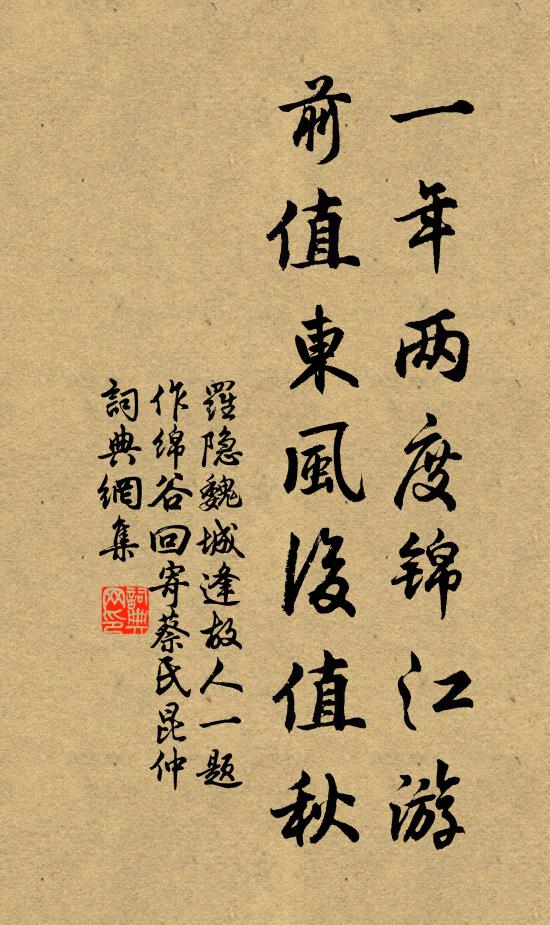 一年两度锦江游
前值東風後值秋
羅隐魏城逢故人一题
作绵谷回寄蔡氏昆仲
詞典網集
詞典網印